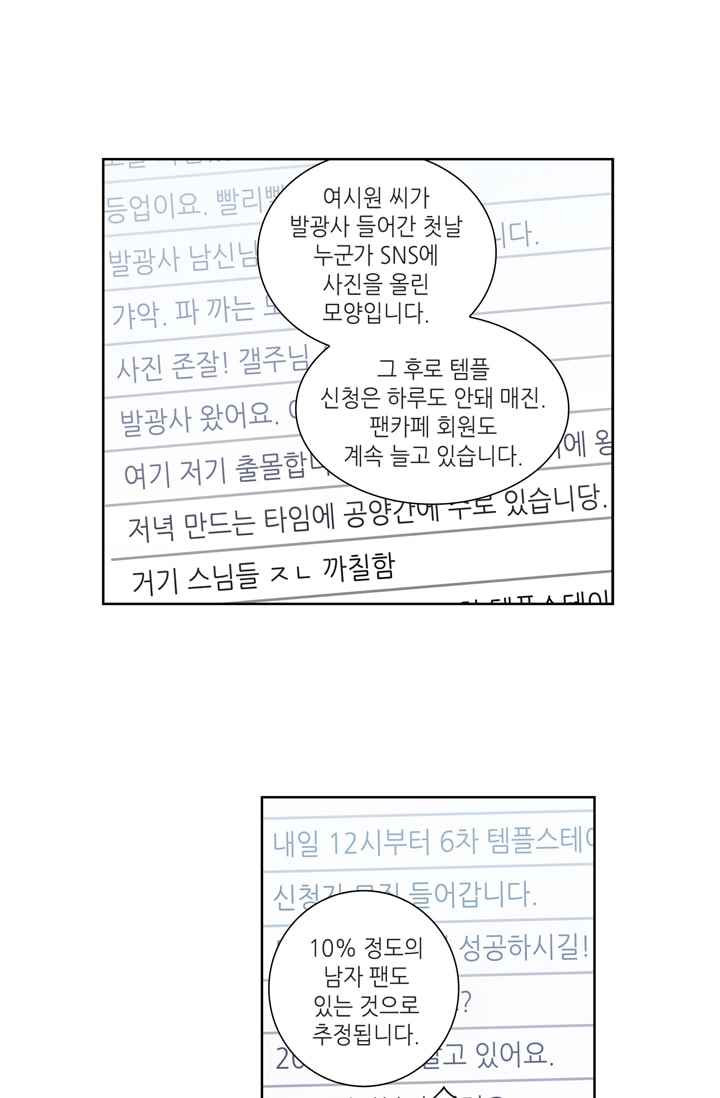 등업이요. 빨리
발광사 남신님
니다.
갸악. 파 까는
사진 존잘! 갤주님
발광사 왔어요.
여기 저기 출몰합니
에 왕
저녁 만드는 타임에 공양간에 주로 있습니당.
거기 스님들 ㅈㄴ 까칠함
템플스테이
여시원 씨가
발광사 들어간 첫날
누군가 SNS에
사진을 올린
모양입니다.
그 후로 템플
신청은 하루도 안돼 매진.
팬카페 회원도
계속 늘고 있습니다.
내일 12시부터 6차 템플스테이
신청자 모집 들어갑니다.
성공하시길!
?
고 있어요.
10% 정도의
남자 팬도
있는 것으로
추정됩니다.